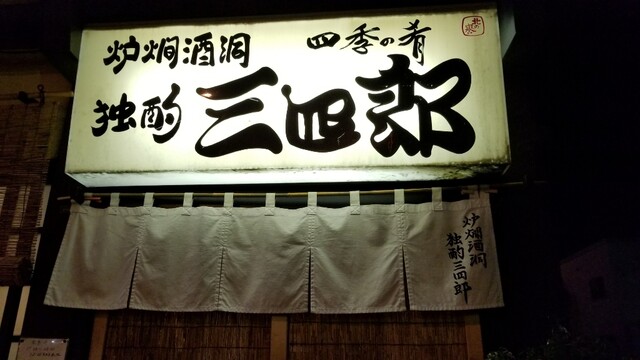 炉燗酒洞
四季の肴
独酌
三四郎
炉燗酒洞
独酌三四郎